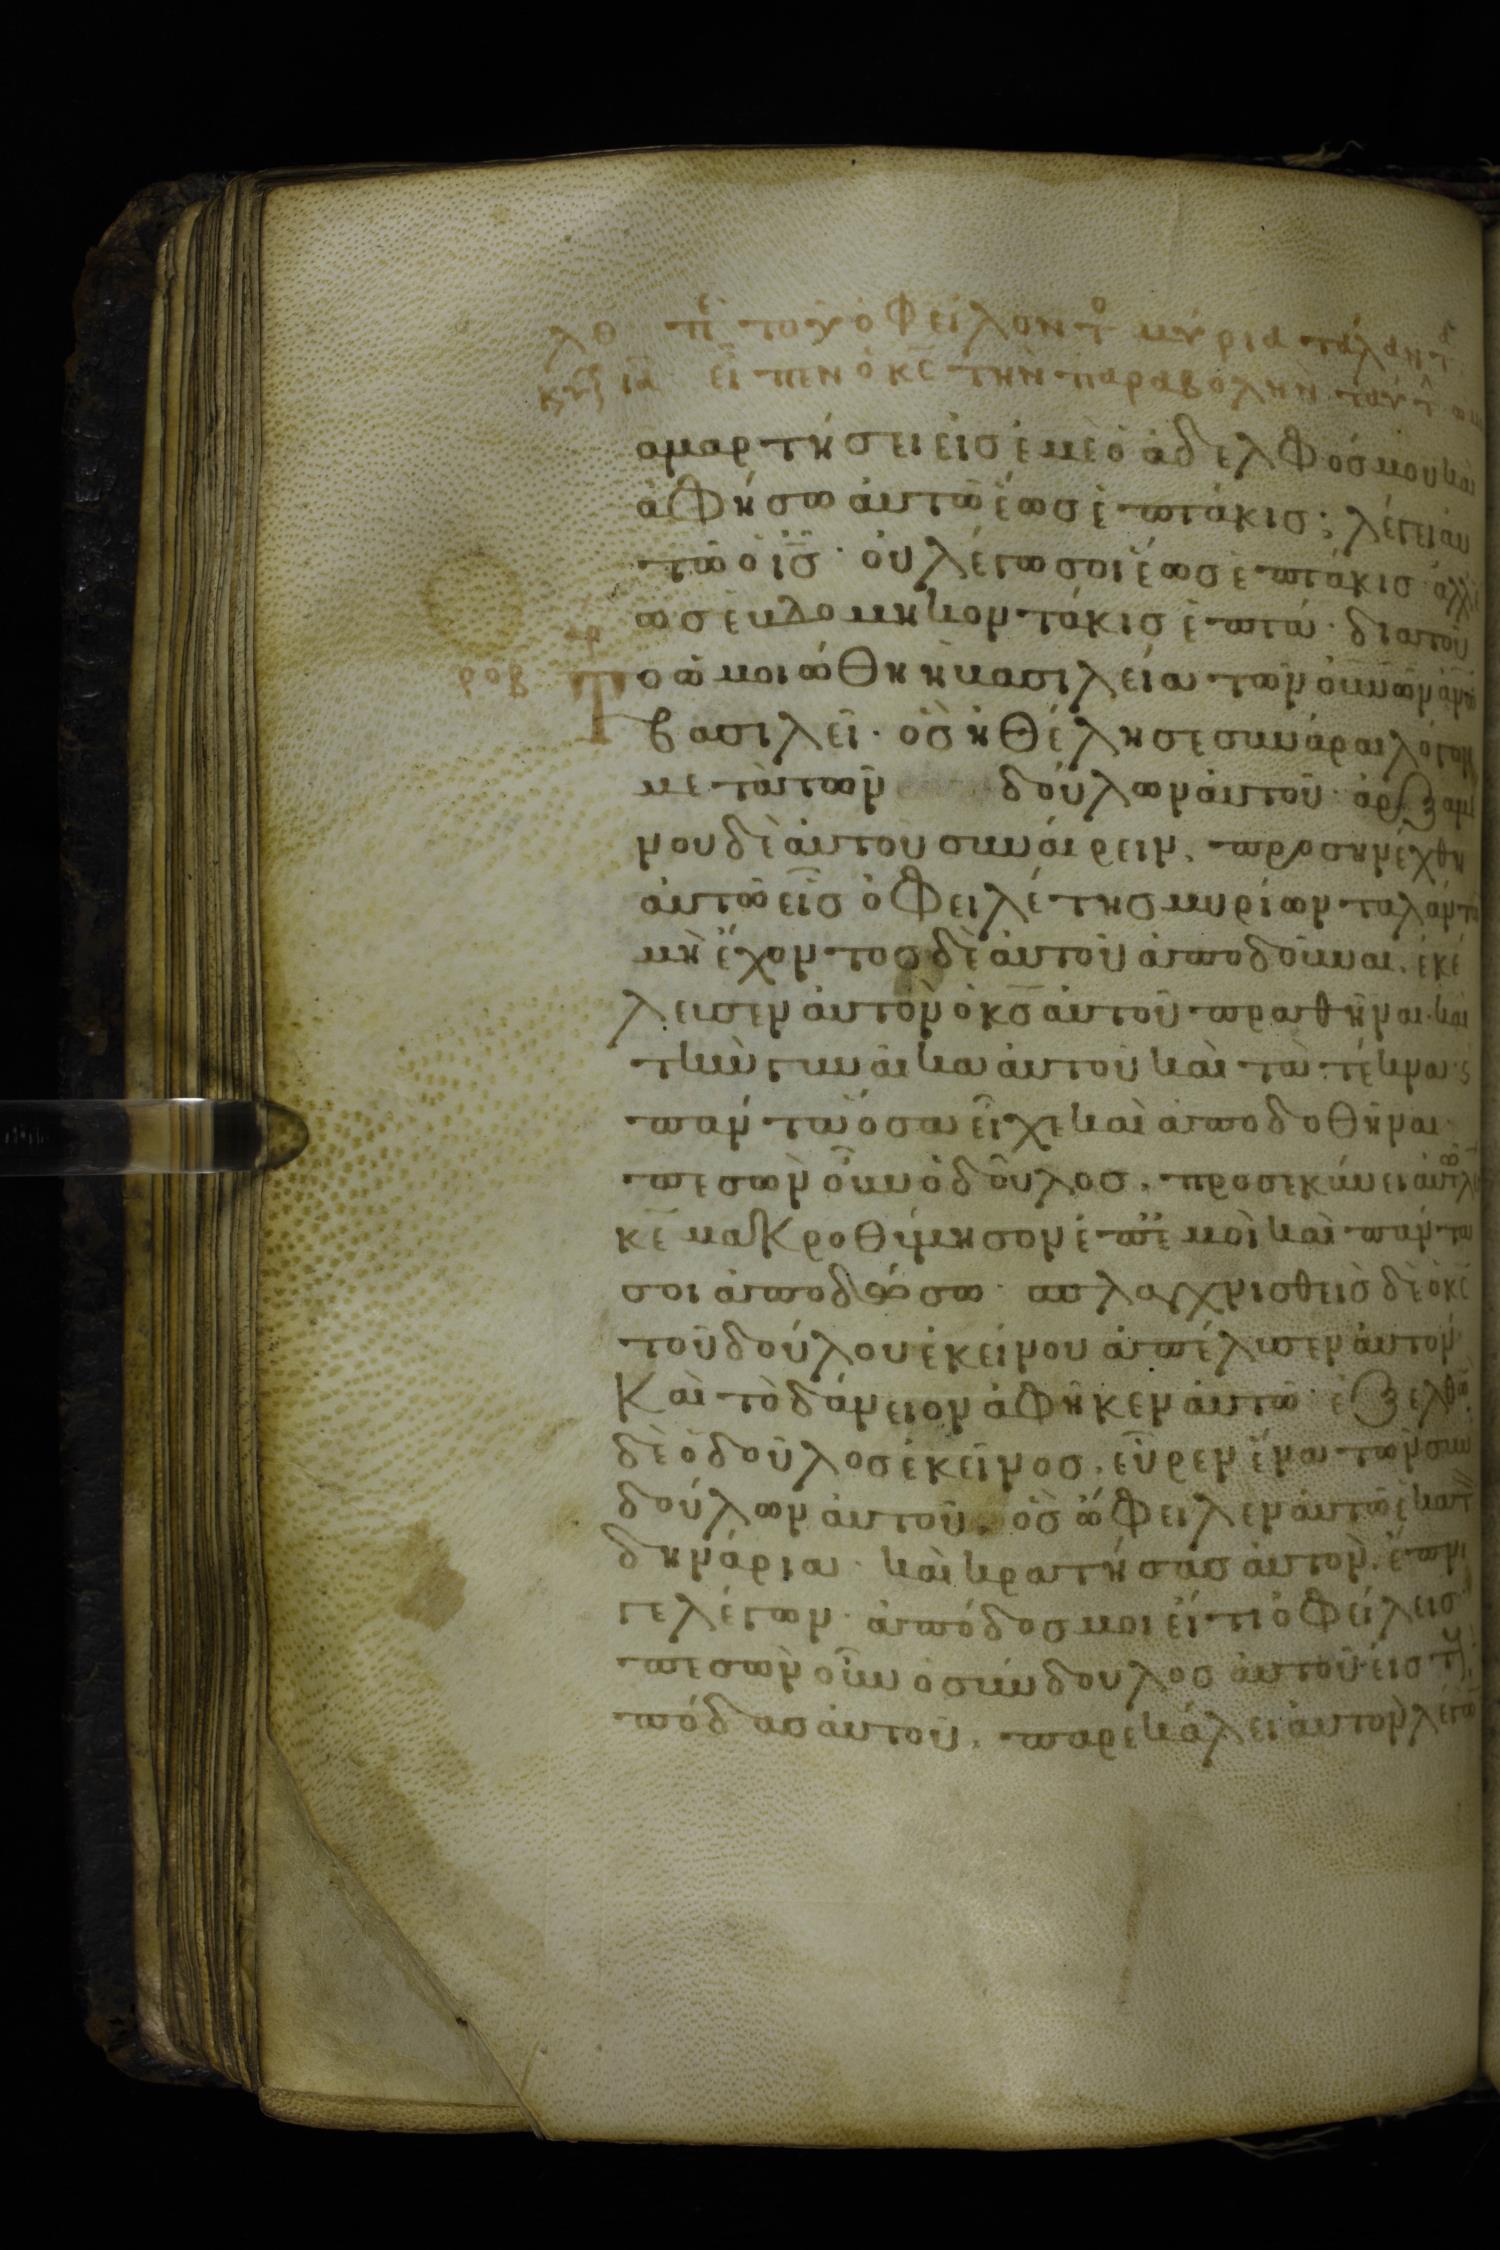 λθ πε τοῦ ὀφείλοντο μύρια τάλαντ
κυρια εἶπεν ὁ κς τὴν παραβολὴν ταύτ
αμαρτήσει εἰσ ἐμὲ ὁ ἀδελφόσ μου καὶ
ἀφήσω ἀυτῶ ἕωσ ἑπτάκισ; λέγει ἀυ
τῶ ὁ ις · ὀυ λέγω σοι ἕωσ ἑπτάκισ ἀλλ ἕ
ωσ ἑβδομηκοντάκισ ἑπτά · διατοῦ
ρογ αρ
Το ὡμοιώθη ἡ βασιλεία τῶν ὀυνῶν ἀνω
βασιλεῖ · ὃσ ἠθέλησε συνάραι λόγον
μετὰ τῶν δούλων ἀυτοῦ · ἀρξαμ
νου δὲ ἀυτοῦ συναίρειν, προσηνέχθη
ἀυτῶ εἷσ ὀφειλέτησ μυρίων ταλάντω
μὴ ἔχοντοσ δὲ ἀυτοῦ ἀποδοῦναι, ἐκέ
λευσεν ἀυτὸν ὁ κσ ἀυτοῦ πραθῆναι · καὶ
τὴν γυναῖκα ἀυτοῦ καὶ τὰ τέκνα · ϛ
πάντα ὅσα εἶχε καὶ ἀποδοθῆναι ·
πεσὼν οὖν ὁ δοῦλοσ, προσεκύνει ἀυτω λε
κε μακροθύμησον ἐπ ἐμοὶ καὶ πάντα
σοι ἀποδώσω · σπλαγχνισθεὶσ δὲ ὁ κς
τοῦ δούλου ἐκείνου ἀπέλυσεν ἀυτόν
Καὶ τὸ δάνειον ἀφῆκεν ἀυτῶ · ἐξελθὼ
δὲ ὁ δοῦλοσ ἐκεῖνοσ, εὗρεν ἕνα τῶν συν
δούλων ἀυτοῦ, ὃσ ὤφειλεν ἀυτῶ ἑκατ
δηνάρια · καὶ κρατήσασ ἀυτὸν, ἔπνι
γε λέγων · ἀπόδοσ μοι εἴ τι ὀφείλεισ
πεσὼν οὖν ὁ σύνδουλοσ ἀυτοῦ εἰσ τοὺ
πόδασ ἀυτοῦ, παρεκάλει ἀυτὸν λέγω